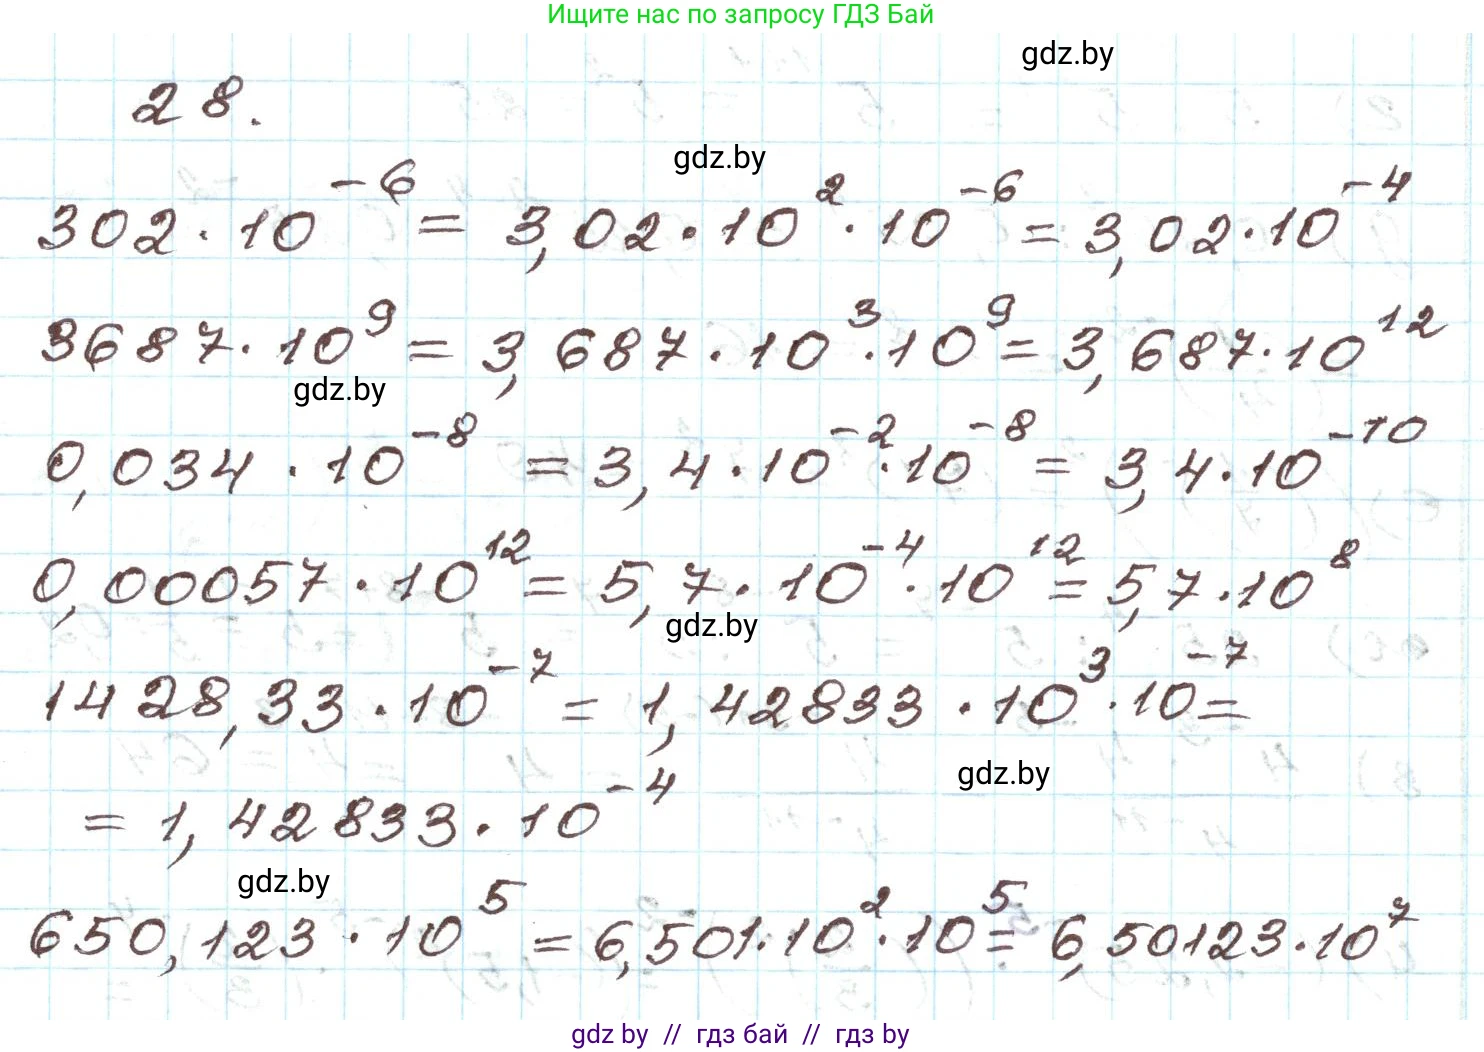 Ищите нас по запросу ГДЗ Бай
gdz.by
28.
gdz.by
302 · 10⁻⁶ = 3,02 · 10² · 10⁻⁶ = 3,02 · 10⁻⁴
3687 · 10⁹ = 3,687 · 10³ · 10⁹ = 3,687 · 10¹²
gdz.by
0,034 · 10⁻⁸ = 3,4 · 10⁻² · 10⁻⁸ = 3,4 · 10⁻¹⁰
0,00057 · 10¹² = 5,7 · 10⁻⁴ · 10¹² = 5,7 · 10⁸
gdz.by
1428,33 · 10⁻⁷ = 1,42833 · 10³ · 10⁻⁷ =
gdz.by
= 1,42833 · 10⁻⁴
gdz.by
650,123 · 10⁵ = 6,501 · 10² · 10⁵ = 6,50123 · 10⁷
gdz by // гдз бай // гдз by